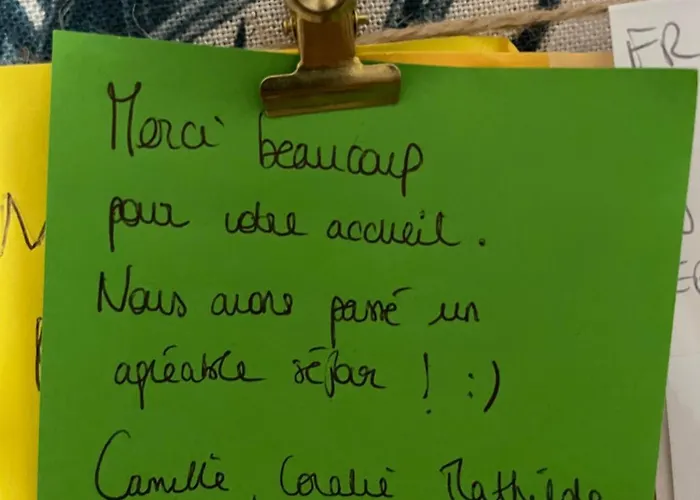 Merci beaucoup
pour votre accueil.
Nous avons passé un
agréable séjour ! :)
Camille, Coralie, Mathilde
FR